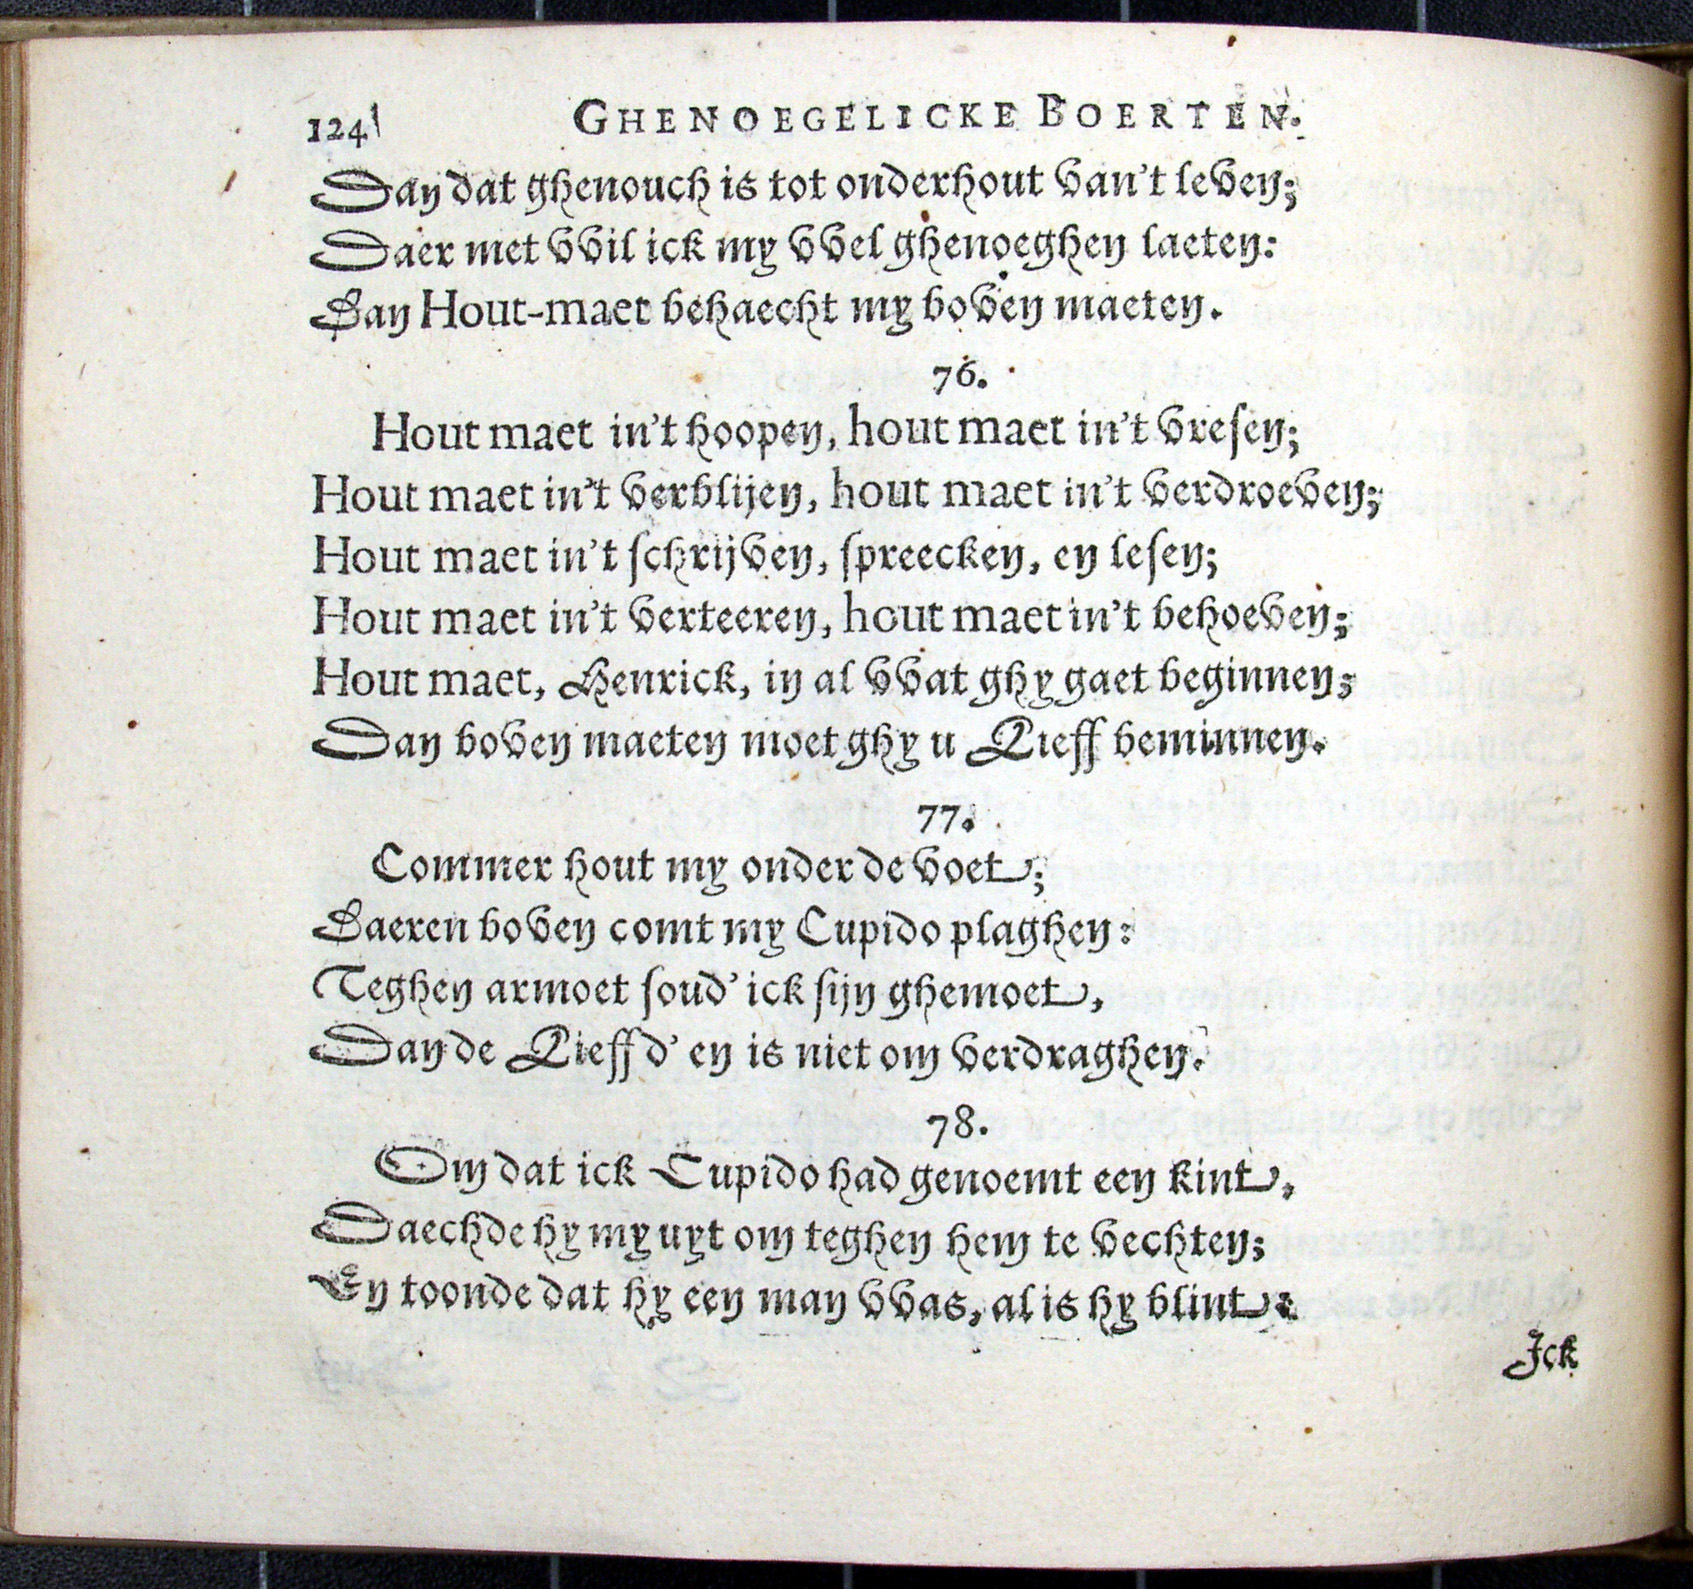 124
GHENOEGELICKE BOERTEN.
Dan dat ghenouch is tot onderhout van't leven;
Daer met vvil ick my vvel ghenoeghen laeten:
Dan Hout-maet behaecht my boven maeten.
76.
Hout maet in't hoopen, hout maet in't vresen;
Hout maet in't verblijen, hout maet in't verdroeven;
Hout maet in't schrijven, spreecken, en lesen;
Hout maet in't verteeren, hout maet in't behoeven;
Hout maet, Henrick, in al vvat ghy gaet beginnen;
Dan boven maeten moet ghy u Lieff beminnen.
77.
Commer hout my onder de voet;
Daeren boven comt my Cupido plaghen:
Teghen armoet soud' ick sijn ghemoet,
Dan de Lieffd' en is niet om verdraghen.
78.
Om dat ick Cupido had genoemt een kint,
Daechde hy my uyt om teghen hem te vechten;
En toonde dat hy een man vvas, al is hy blint:
Ick